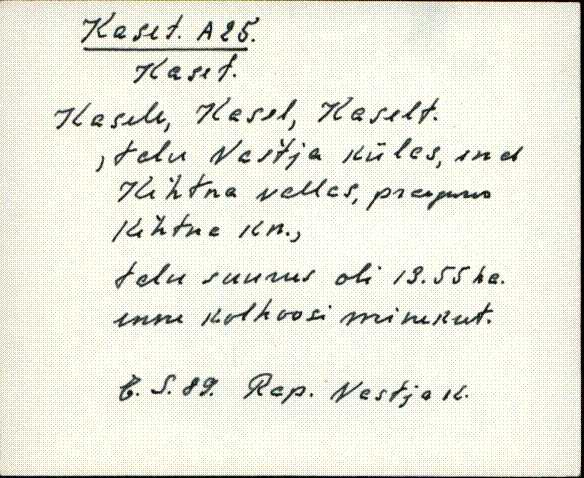 Kaset. A 25.
Kaset.
Kasele, Kasel, Kaselt.
, talu Vastja külas, end
Kehtna vallas, praegune
Kehtna kn.,
talu suurus oli 13.55 ha.
enne kolhoosi minekut.
E. S. 89. Rap. Vastja k.